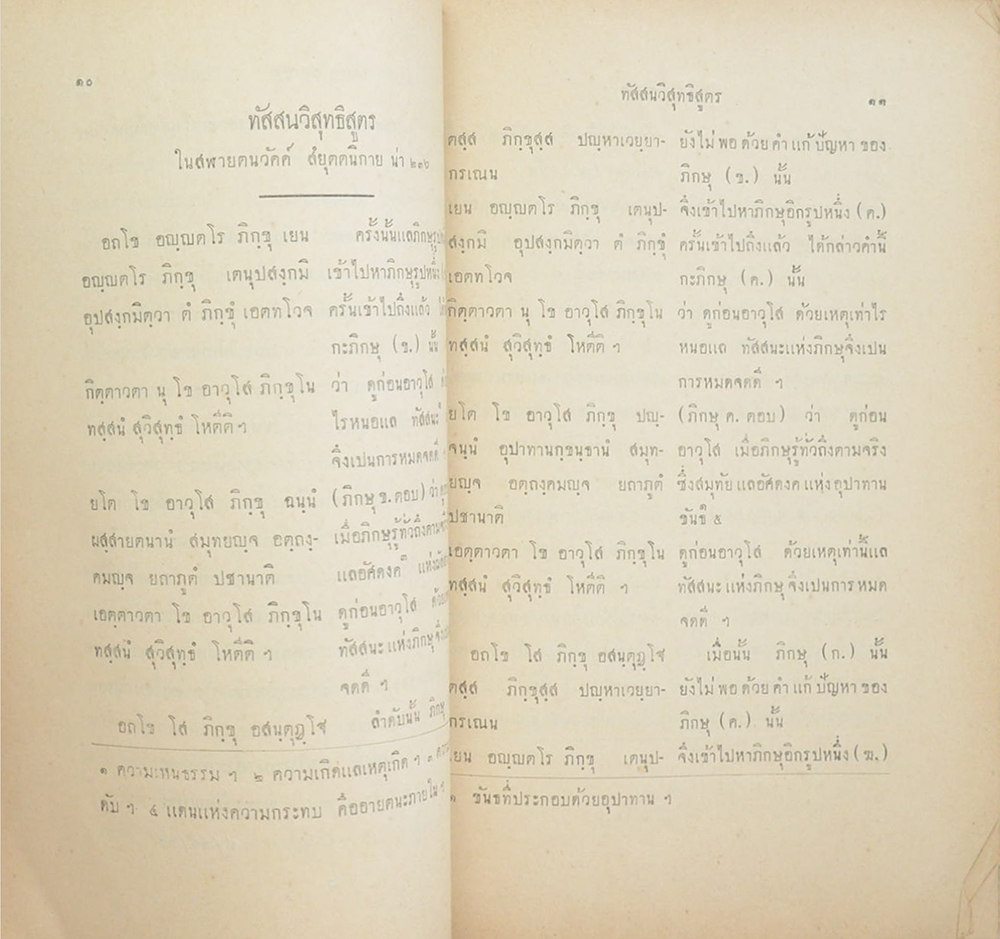 ๑๐
ทัสสนวิสุทธิสูตร
ในสฬายตนวัคค์ สํยุตตนิกาย น่า ๒๓๖
อถโข อญฺญตโร ภิกฺขุ เยน ครั้งนั้นแลภิกษุรูป
อญฺญตโร ภิกฺขุ เตนุปสงฺกมิ เข้าไปหาภิกษุรูปหนึ่ง
อุปสงฺกมิตฺวา ตํ ภิกฺขุํ เอตทโวจ ครั้นเข้าไปถึงแล้ว
กะภิกษุ (ข.) นั้
กิตฺตาวตา นุ โข อาวุโส ภิกฺขุโน ว่า ดูก่อนอาวุโส
ทสฺสนํ สุวิสุทฺธํ โหตีติ ฯ ไรหนอแล ทัสสนะ
จึงเปนการหมดจดดี
ยโต โข อาวุโส ภิกฺขุ ฉนฺนํ (ภิกษุ ข. ตอบ) ว่า
ผสฺสายตนานํ สมุทยญฺจ อตฺถงฺ- เมื่อภิกษุรู้ทั่วถึงตาม
คมญฺจ ยถาภูตํ ปชานาติ แลอัศดงค์ แห่ง
เอตฺตาวตา โข อาวุโส ภิกฺขุโน ดูก่อนอาวุโส ด้วย
ทสฺสนํ สุวิสุทฺธํ โหตีติ ฯ ทัสสนะแห่งภิกษุ
จดดี ฯ
อถโข โส ภิกฺขุ อสนฺตุฏฺโฐ ลำดับนั้น ภิกษุ
๑ ความเหนธรรม ฯ ๒ ความเกิดแลเหตุเกิด ฯ ๓
ดับ ฯ ๔ แดนแห่งความกระทบ คืออายตนะภายใน ฯ
ทัสสนวิสุทธิสูตร ๑๑
ตสฺส ภิกฺขุสฺส ปญฺหาเวยฺยา- ยังไม่พอ ด้วยคำแก้ปัญหาของ
กรเณน ภิกษุ (ข.) นั้น
เยน อญฺญตโร ภิกฺขุ เตนุป- จึงเข้าไปหาภิกษุอีกรูปหนึ่ง (ค.)
สงฺกมิ อุปสงฺกมิตฺวา ตํ ภิกฺขุํ ครั้นเข้าไปถึงแล้ว ได้กล่าวคำนี้
เอตทโวจ กะภิกษุ (ค.) นั้น
กิตฺตาวตา นุ โข อาวุโส ภิกฺขุโน ว่า ดูก่อนอาวุโส ด้วยเหตุเท่าไร
ทสฺสนํ สุวิสุทฺธํ โหตีติ ฯ หนอแล ทัสสนะแห่งภิกษุจึงเปน
การหมดจดดี ฯ
ยโต โข อาวุโส ภิกฺขุ ปญฺ- (ภิกษุ ค. ตอบ) ว่า ดูก่อน
จนฺนํ อุปาทานกฺขนฺธานํ สมุท- อาวุโส เมื่อภิกษุรู้ทั่วถึงตามจริง
ยญฺจ อตฺถงฺคมญฺจ ยถาภูตํ ซึ่งสมุทัย แลอัศดงค แห่งอุปาทาน
ปชานาติ ขันธ์ ๕
เอตฺตาวตา โข อาวุโส ภิกฺขุโน ดูก่อนอาวุโส ด้วยเหตุเท่านี้แล
ทสฺสนํ สุวิสุทฺธํ โหตีติ ฯ ทัสสนะแห่งภิกษุ จึงเปนการหมด
จดดี ฯ
อถโข โส ภิกฺขุ อสนฺตุฏฺโฐ เมื่อนั้น ภิกษุ (ก.) นั้น
ตสฺส ภิกฺขุสฺส ปญฺหาเวยฺยา- ยังไม่พอ ด้วยคำแก้ปัญหาของ
กรเณน ภิกษุ (ค.) นั้น
เยน อญฺญตโร ภิกฺขุ เตนุป- จึงเข้าไปหาภิกษุอีกรูปหนึ่ง (ฆ.)
๑ ขันธที่ประกอบด้วยอุปาทาน ฯ